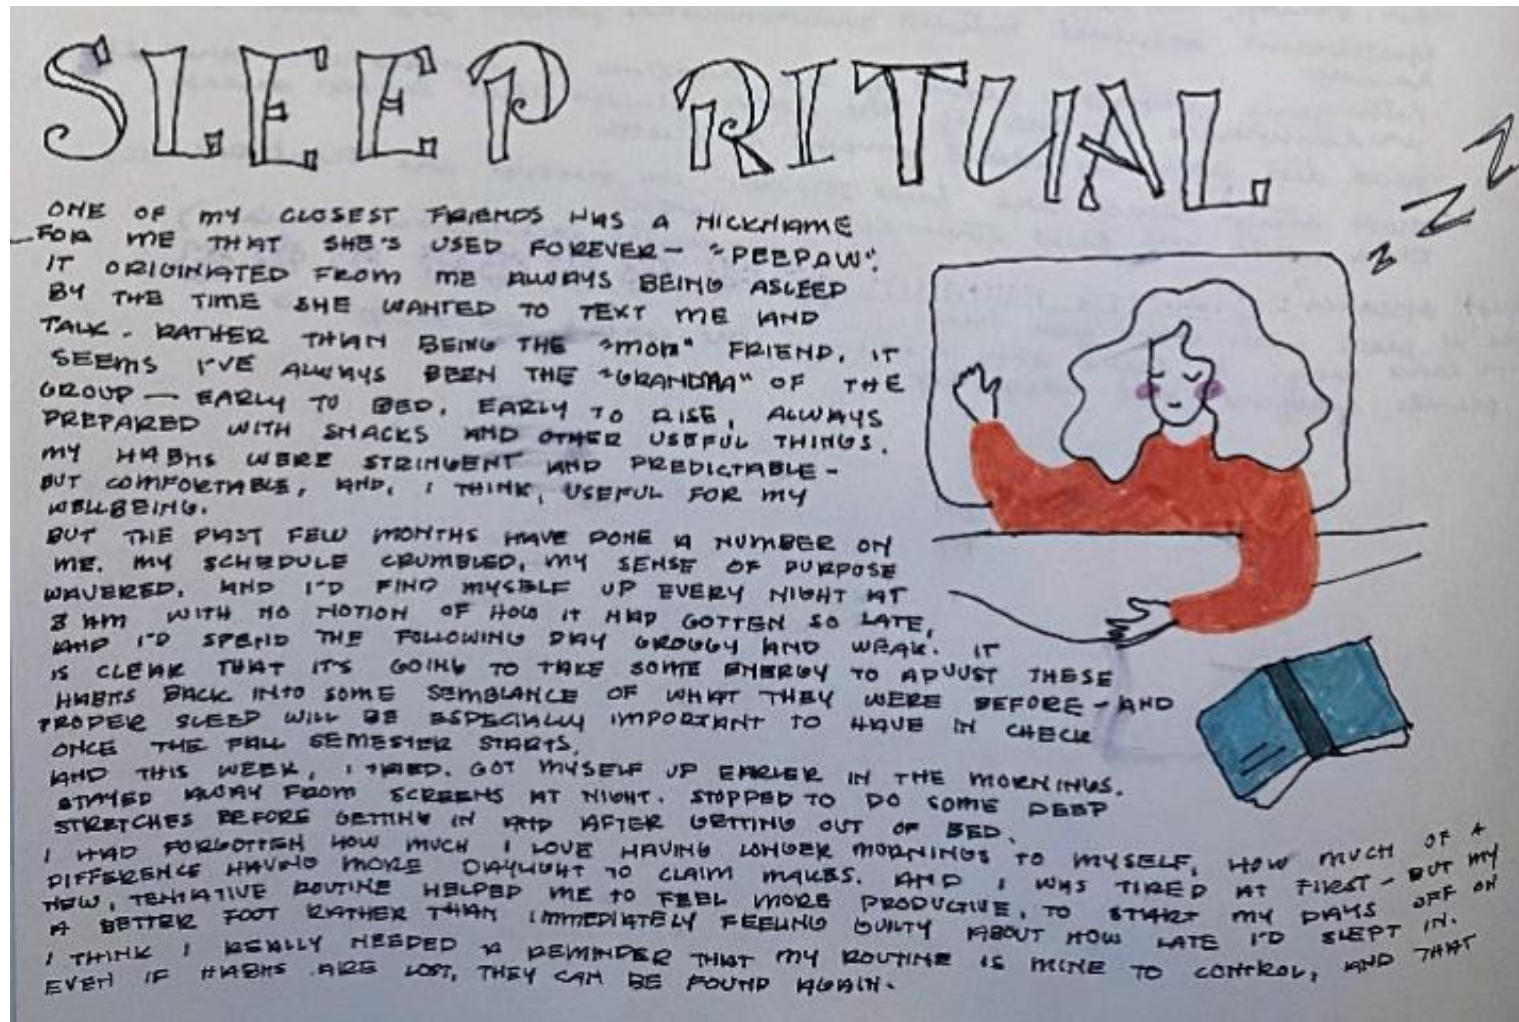 SLEEP RITUAL
Z Z Z
ONE OF MY CLOSEST FRIENDS HAS A NICKNAME
FOR ME THAT SHE'S USED FOREVER - "PEEPAW".
IT ORIGINATED FROM ME ALWAYS BEING ASLEEP
BY THE TIME SHE WANTED TO TEXT ME AND
TALK. RATHER THAN BEING THE "MOM" FRIEND, IT
SEEMS I'VE ALWAYS BEEN THE "GRANDMA" OF THE
GROUP — EARLY TO BED, EARLY TO RISE, ALWAYS
PREPARED WITH SNACKS AND OTHER USEFUL THINGS.
MY HABITS WERE STRINGENT AND PREDICTABLE -
BUT COMFORTABLE, AND, I THINK, USEFUL FOR MY
WELLBEING.
BUT THE PAST FEW MONTHS HAVE DONE A NUMBER ON
ME. MY SCHEDULE CRUMBLED, MY SENSE OF PURPOSE
WAVERED, AND I'D FIND MYSELF UP EVERY NIGHT AT
3 AM WITH NO NOTION OF HOW IT HAD GOTTEN SO LATE,
AND I'D SPEND THE FOLLOWING DAY GROGGY AND WEAK. IT
IS CLEAR THAT IT'S GOING TO TAKE SOME ENERGY TO ADJUST THESE
HABITS BACK INTO SOME SEMBLANCE OF WHAT THEY WERE BEFORE - AND
PROPER SLEEP WILL BE ESPECIALLY IMPORTANT TO HAVE IN CHECK
ONCE THE FALL SEMESTER STARTS.
AND THIS WEEK, I TRIED. GOT MYSELF UP EARLIER IN THE MORNINGS.
STAYED AWAY FROM SCREENS AT NIGHT. STOPPED TO DO SOME DEEP
STRETCHES BEFORE GETTING IN AND AFTER GETTING OUT OF BED.
I HAD FORGOTTEN HOW MUCH I LOVE HAVING LONGER MORNINGS TO MYSELF, HOW MUCH OF A
DIFFERENCE HAVING MORE DAYLIGHT TO CLAIM MAKES. AND I WAS TIRED AT FIRST - BUT MY
NEW, TENTATIVE ROUTINE HELPED ME TO FEEL MORE PRODUCTIVE, TO START MY DAYS OFF ON
A BETTER FOOT RATHER THAN IMMEDIATELY FEELING GUILTY ABOUT HOW LATE I'D SLEPT IN.
I THINK I REALLY NEEDED A REMINDER THAT MY ROUTINE IS MINE TO CONTROL, AND THAT
EVEN IF HABITS ARE LOST, THEY CAN BE FOUND AGAIN.